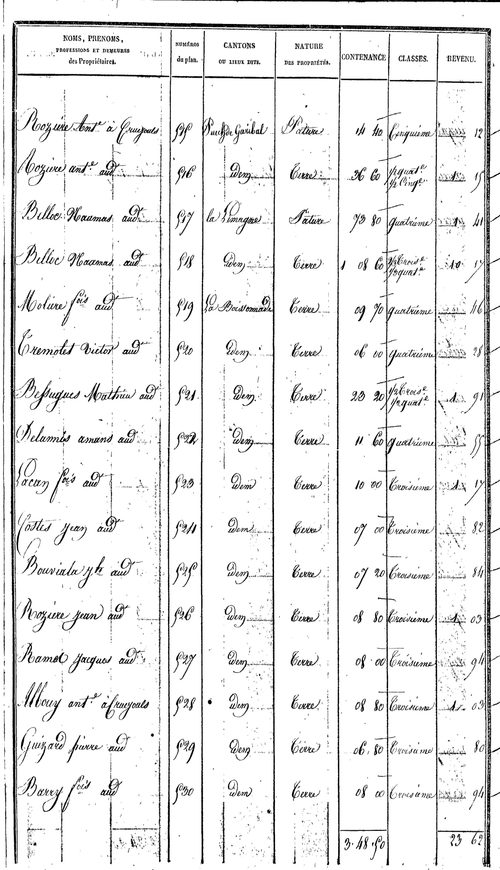 NOMS, PRENOMS, PROFESSIONS ET DEMEURES des Propriétaires. NUMÉROS du plan. CANTONS OU LIEUX DITS. NATURE DES PROPRIÉTÉS. CONTENANCE CLASSES. REVENU.
Rozière Ant.e à Cruejouls 515 Puech de Garibal Pature 14 40 Cinquième 12
Rozière ant.e aud. 516 idem Terre 36 60 ½ quat.e ½ Cinq.e 1 15
Billoc Naamas aud. 517 la Limagne Pature 73 80 quatrième 1 41
Billoc Naamas aud. 518 idem Terre 1 08 60 ½ Trois.e ½ quat.e 10 17
Molière fois aud. 519 La Boissonnade Terre 09 70 quatrième 46
Tremolet Victor aud. 520 idem Terre 06 00 quatrième 28
Bessugues Mathieu aud 521 idem Terre 23 20 ½ Trois.e ½ quat.e 1 91
Delannés amans aud 522 idem Terre 11 60 quatrième 55
Lacan fois aud 523 idem Terre 10 00 Troisième 1 17
Costes jean aud 524 idem Terre 07 00 Troisième 82
Bouviala jh aud 525 idem Terre 07 20 Troisième 84
Rozière jean aud 526 idem Terre 08 80 Troisième 1 03
Ramot jacques aud. 527 idem Terre 08 00 Troisième 94
Albouy ant.e à Cruejouls 528 idem Terre 08 80 Troisième 1 03
Guizard pierre aud 529 idem Terre 06 80 Troisième 80
Barry fois aud 530 idem Terre 08 00 Troisième 94
3.48.50 23 62